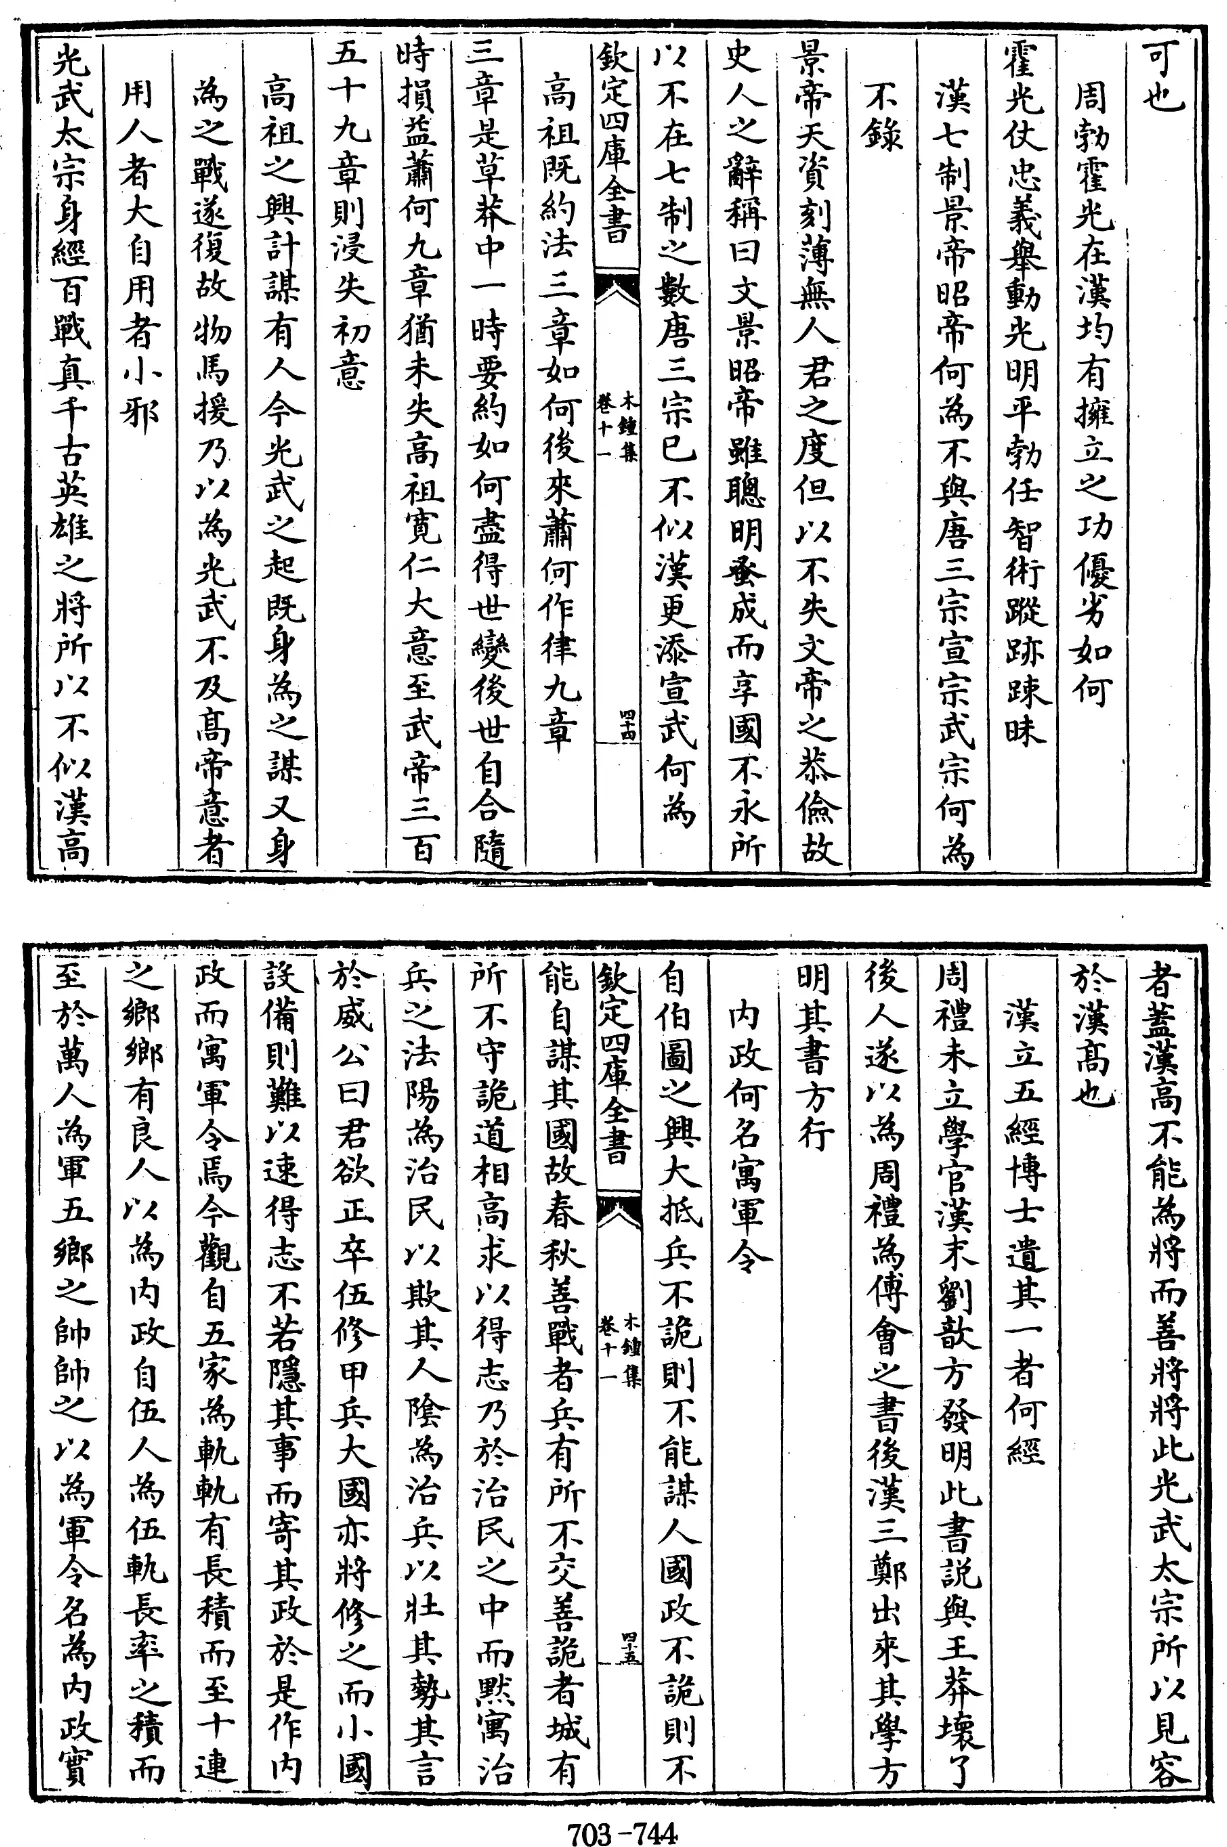 可也
周勃霍光在漢均有擁立之功優劣如何
霍光仗忠義舉動光明平勃任智術蹤跡踈昧
漢七制景帝昭帝何為不與唐三宗宣宗武宗何為
不錄
景帝天資刻薄無人君之度但以不失文帝之恭儉故
史人之辭稱曰文景昭帝雖聰明蚤成而享國不永所
以不在七制之數唐三宗已不似漢更添宣武何為
欽定四庫全書
木鐘集
卷十一
四十四
高祖既約法三章如何後來蕭何作律九章
三章是草莽中一時要約如何盡得世變後世自合隨
時損益蕭何九章猶未失高祖寬仁大意至武帝三百
五十九章則浸失初意
高祖之興計謀有人今光武之起既身為之謀又身
為之戰遂復故物馬援乃以為光武不及高帝意者
用人者大自用者小邪
光武太宗身經百戰真千古英雄之將所以不似漢高
者蓋漢高不能為將而善將將此光武太宗所以見容
於漢高也
漢立五經博士遺其一者何經
周禮未立學官漢末劉歆方發明此書説與王莽壞了
後人遂以為周禮為傅會之書後漢三鄭出來其學方
明其書方行
内政何名寓軍令
自伯圖之興大抵兵不詭則不能謀人國政不詭則不
欽定四庫全書
木鐘集
卷十一
四十五
能自謀其國故春秋善戰者兵有所不交善詭者城有
所不守詭道相高求以得志乃於治民之中而黙寓治
兵之法陽為治民以欺其人陰為治兵以壯其勢其言
於威公曰君欲正卒伍修甲兵大國亦將修之而小國
設備則難以速得志不若隱其事而寄其政於是作内
政而寓軍令焉今觀自五家為軌軌有長積而至十連
之鄉鄉有良人以為内政自伍人為伍軌長率之積而
至於萬人為軍五鄉之帥帥之以為軍令名為内政實
703-744